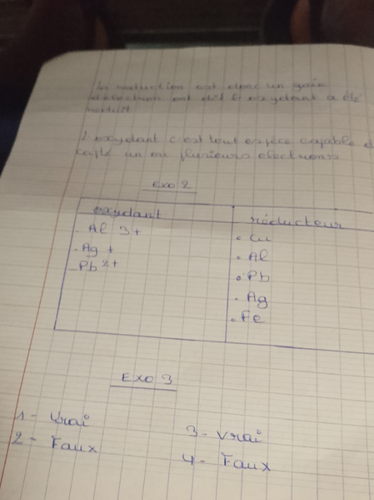 La reduction est donc un gain
d'électron est dit l'oxydant a été
réduit
L'oxydant c'est tout espèce capable d
capté un ou plusieurs electrons
Exo 2
oxydant réducteur
- Al 3+ • Cu
- Ag + • Al
- Pb 2+ • Pb
• Ag
• Fe
Exo 3
1 - Vrai 3 - Vrai
2 - Faux 4 - Faux